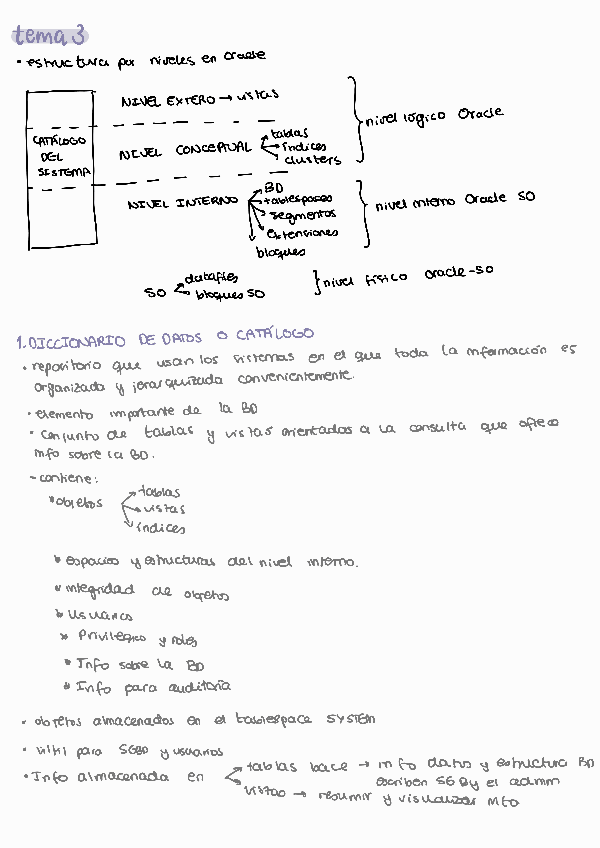 tema 3
• estructura por niveles en Oracle
NIVEL EXTERO → vistas
CATÁLOGO DEL SISTEMA
NIVEL CONCEPTUAL → tablas
→ índices
→ clusters
nivel lógico Oracle
NIVEL INTERNO → BD
→ tablespaces
→ segmentos
→ extensiones
bloques
nivel interno Oracle SO
SO → datafiles
→ bloques SO
nivel físico Oracle-SO
1. DICCIONARIO DE DATOS O CATÁLOGO
• repositorio que usan los sistemas en el que toda la información es
organizada y jerarquizada convenientemente.
• elemento importante de la BD
• conjunto de tablas y vistas orientados a la consulta que ofrece
info sobre la BD.
- contiene:
* objetos → tablas
→ vistas
→ índices
* espacios y estructuras del nivel interno.
* integridad de objetos
* Usuarios
* Privilegios y roles
* Info sobre la BD
* Info para auditoría
• objetos almacenados en el tablespace SYSTEM
• para SGBD y usuarios
• Info almacenada en → tablas base → info datos y estructura BD
escriben SGBD y el admin
→ vistas → resumir y visualizar info